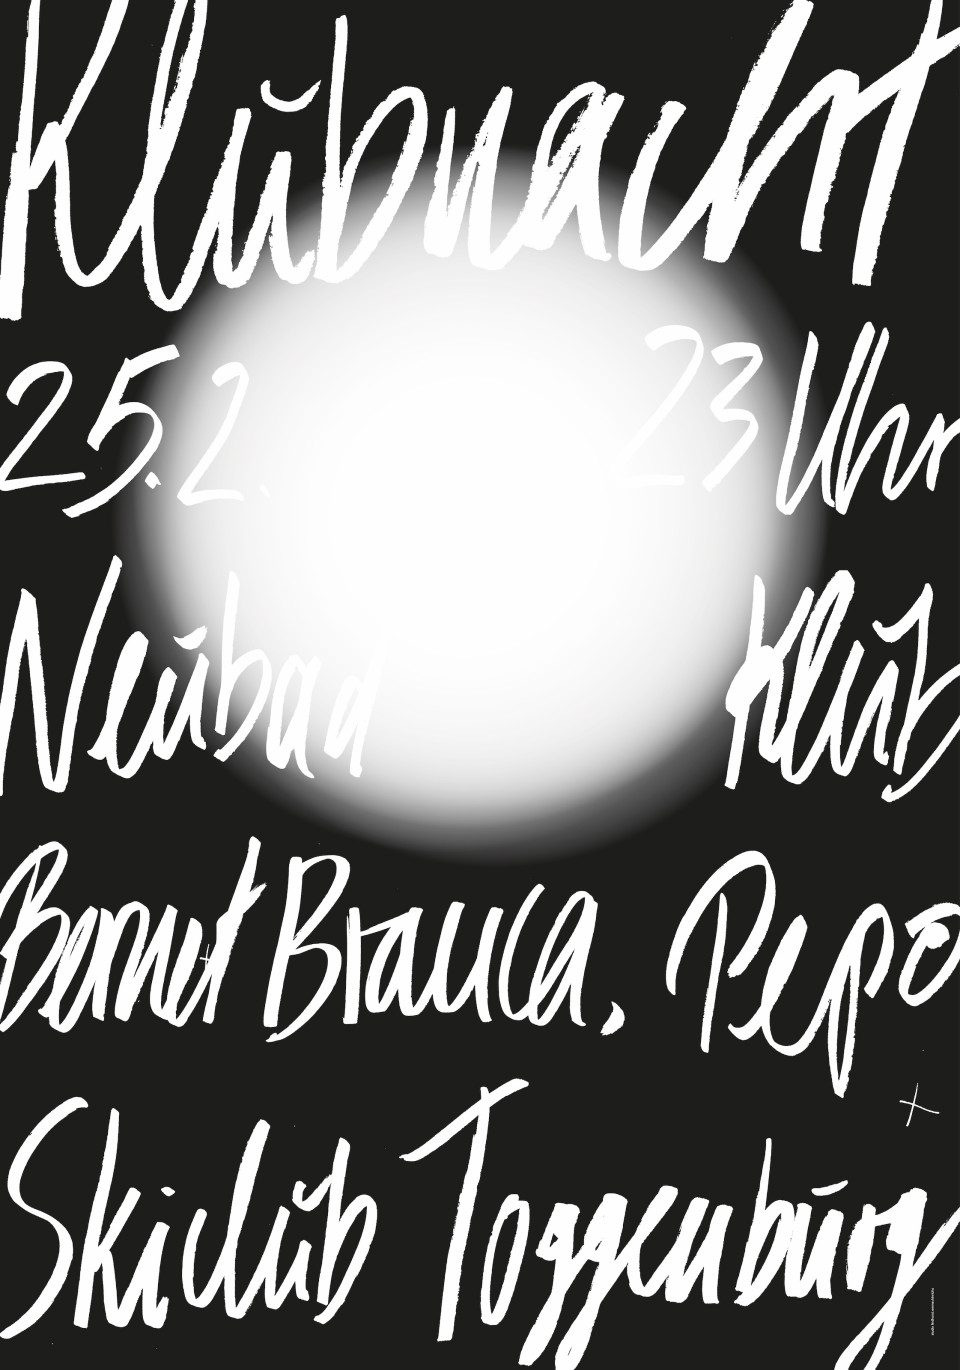 Klŭbnacht
25.2. 23 Uhr
Neŭbad Klŭb
Bernet Brauca, Pepo
Skiclŭb Toggenbūrg